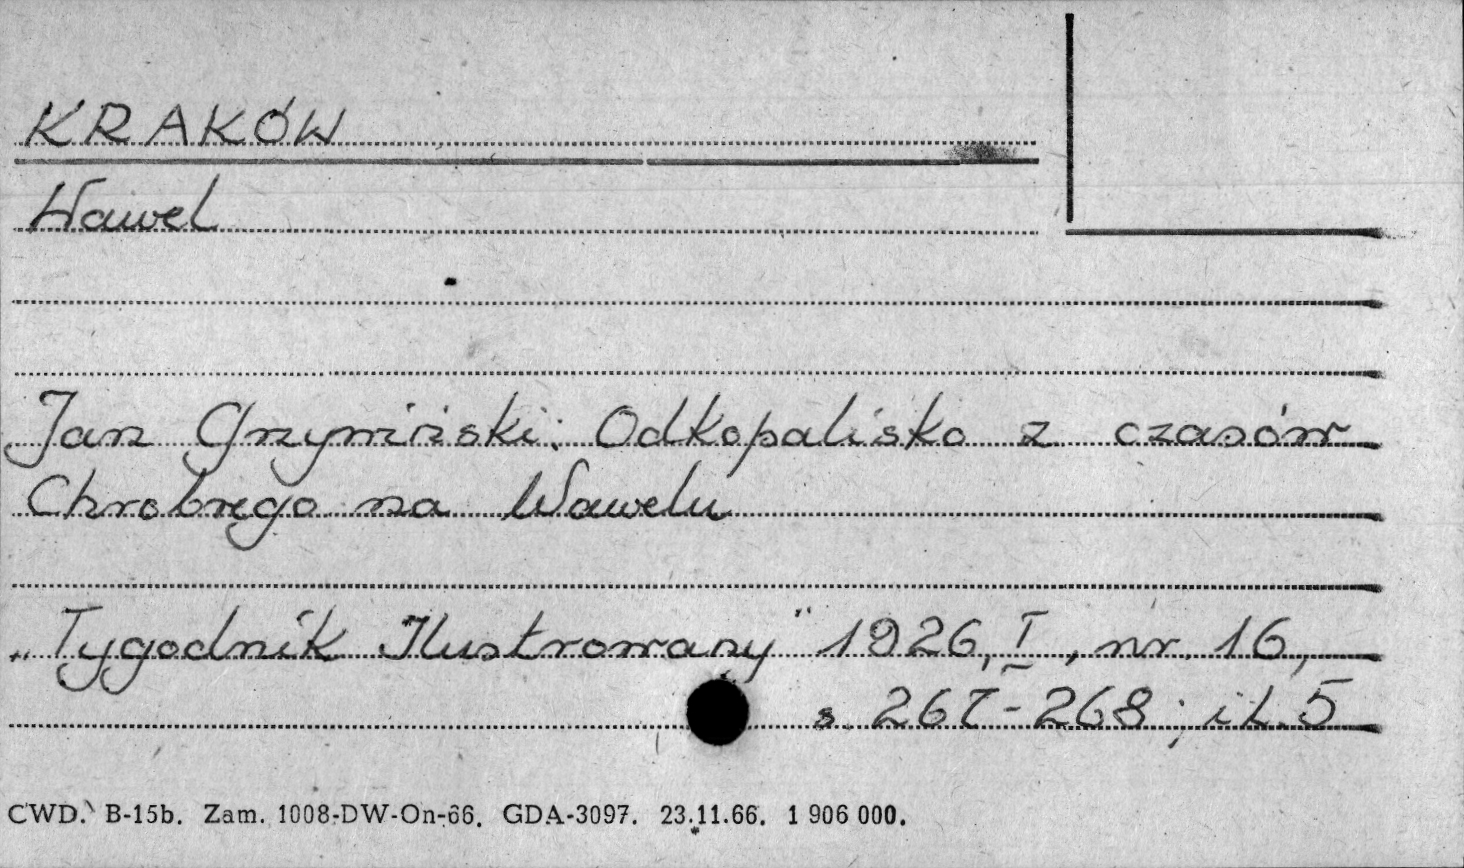 KRAKÓW
Wawel
Jan Grzymiński: Odkopalisko z czasów
Chrobrego na Wawelu
„Tygodnik Ilustrowany" 1926, I, nr. 16,
s. 267-268; il. 5
CWD. B-15b. Zam. 1008-DW-On-66. GDA-3097. 23.11.66. 1 906 000.